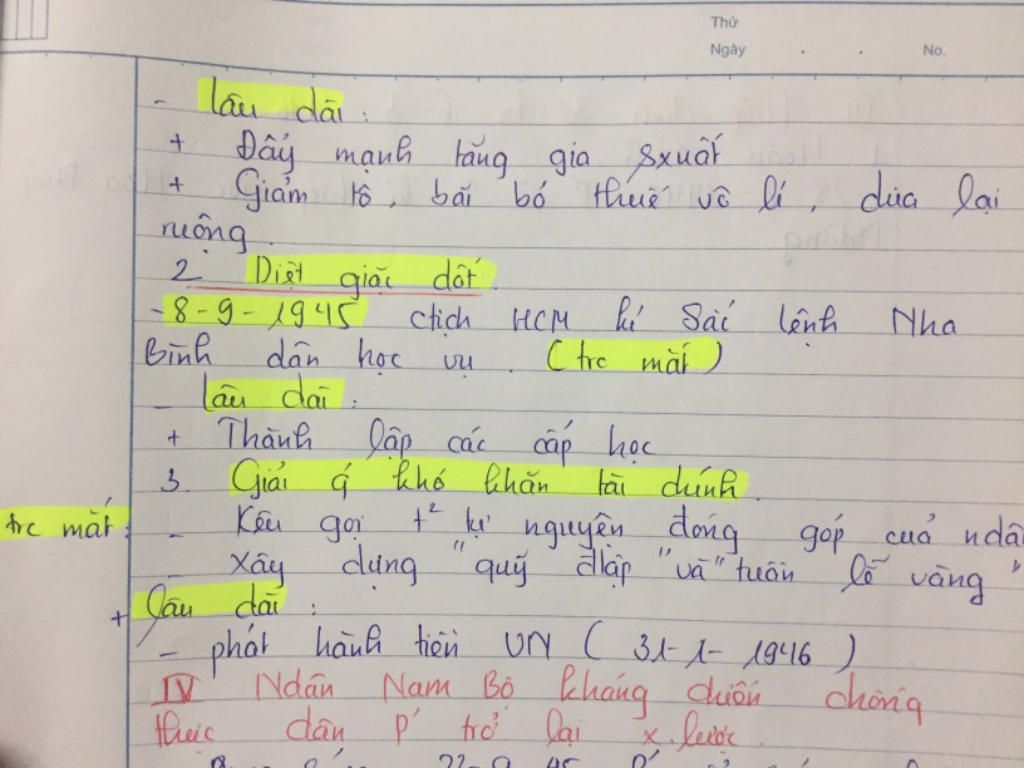 Thứ
Ngày . . No.
- lâu dài :
+ Đẩy mạnh tăng gia sxuất
+ Giảm tô, bãi bỏ thuế vô lí, chia lại
ruộng.
2 Diệt giặc dốt.
- 8-9-1945 ctịch HCM kí Sắc lệnh Nha
Bình dân học vụ. (trc mắt)
- lâu dài :
+ Thành lập các cấp học
3. Giải q khó khăn tài chính.
trc mắt: - Kêu gọi t² tự nguyện đóng góp của ndâ
- Xây dựng "quỹ đlập" và "tuần lễ vàng"
+ lâu dài :
- phát hành tiền VN ( 31-1-1946 )
IV Ndân Nam Bộ kháng chiến chống
thực dân P' trở lại x.lược.
22-9 45